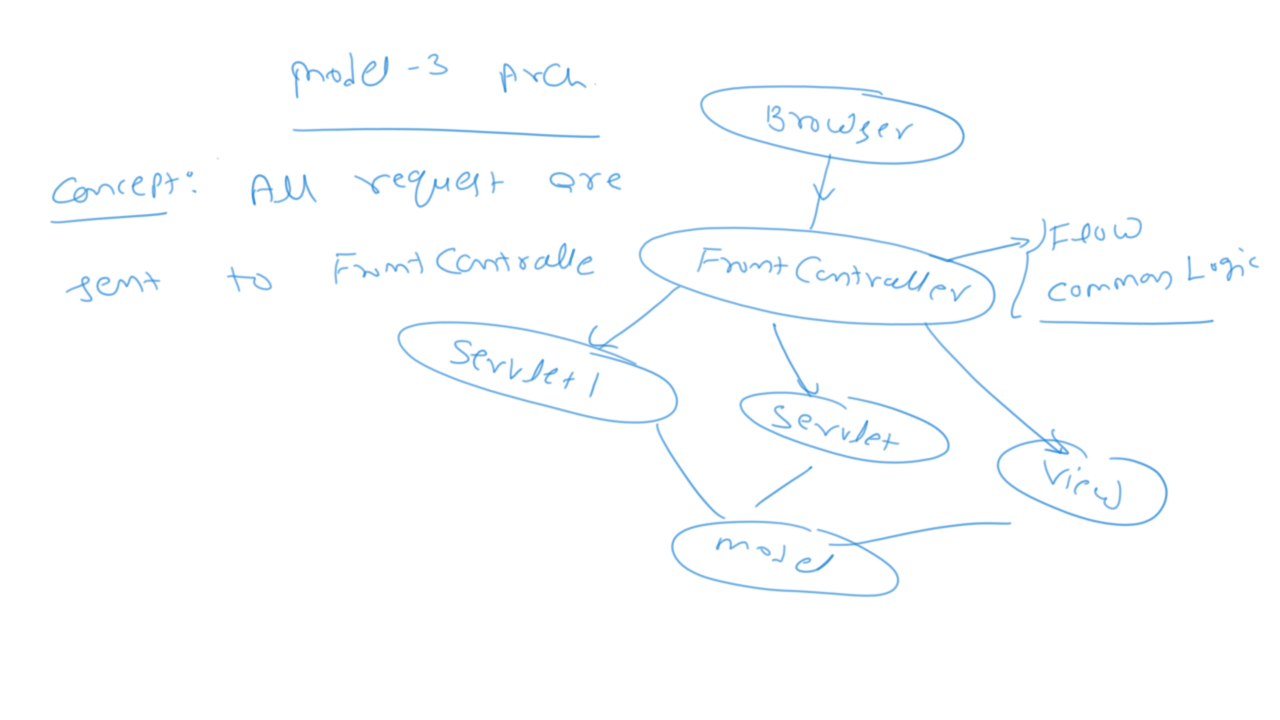 model -3 Arch.
Browser
Concept: All request are
sent to FrontControlle
FrontController
Flow
Common Logic
Servlet1
Servlet
View
model